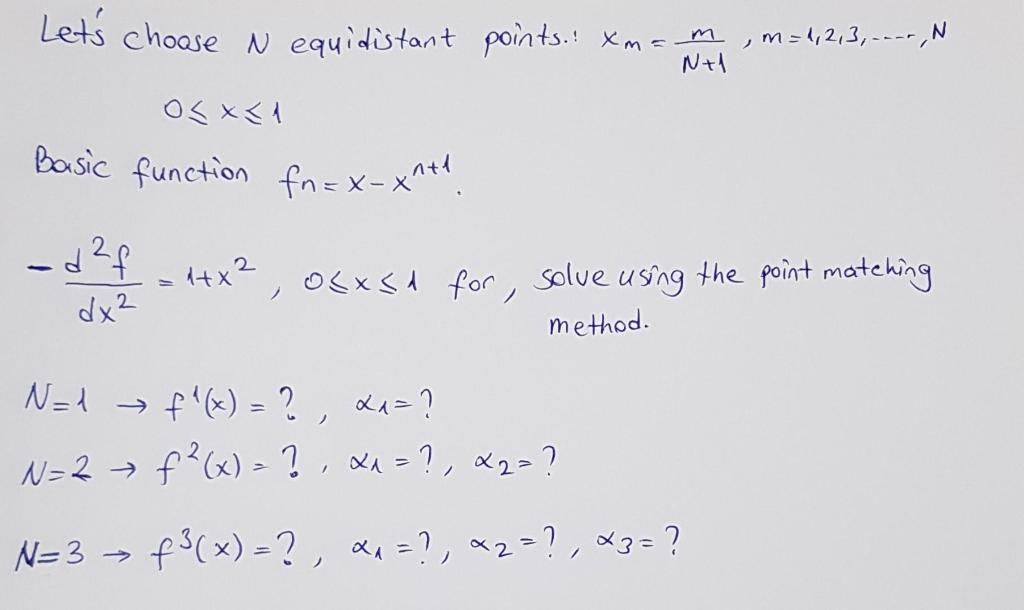 Let's choose N equidistant points.: xm = m/(N+1), m=1,2,3,----,N
0≤x≤1
Basic function fn = x-x^(n+1).
-d²f/dx² = 1+x², 0≤x≤1 for, solve using the point matching
method.
N=1 → f¹(x) = ?, α₁=?
N=2 → f²(x) = ?, α₁=?, α₂=?
N=3 → f³(x) = ?, α₁=?, α₂=?, α₃=?